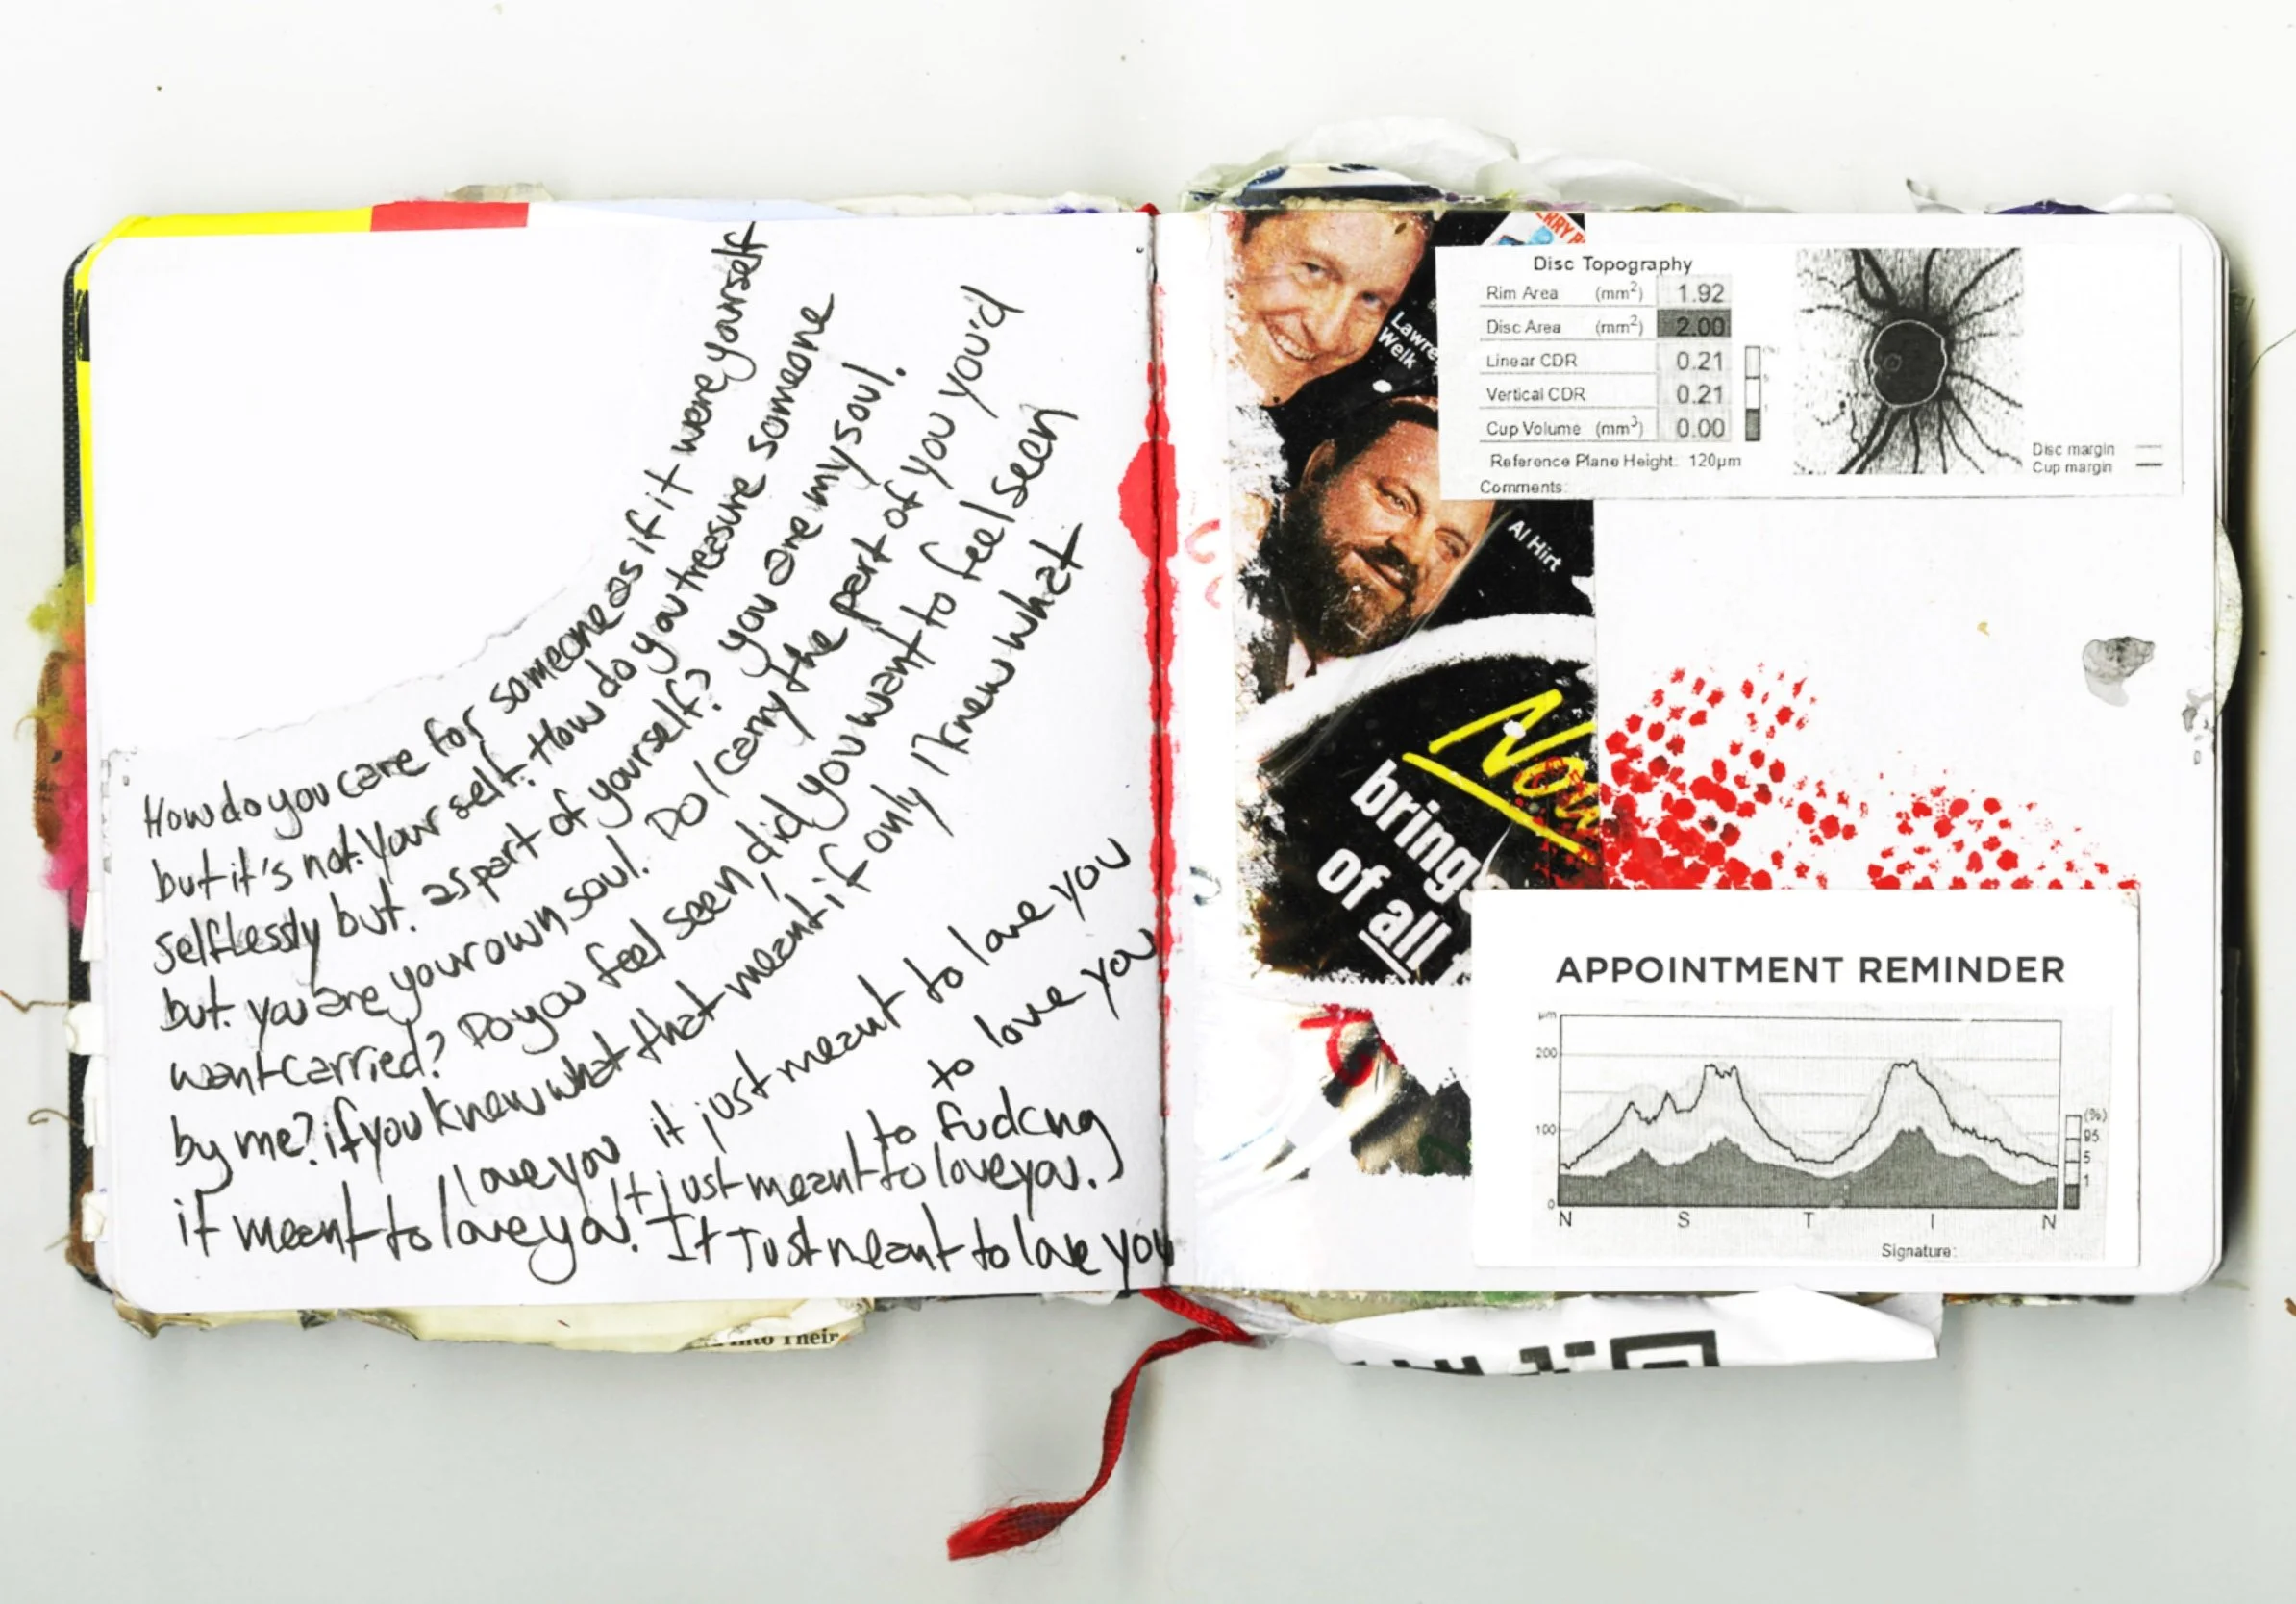 How do you care for someone as if it were yourself
but it's not. Your self. How do you treasure someone
selflessly but. as part of yourself? you are my soul.
but. you are your own soul. Do I carry the part of you you'd
want carried? Do you feel seen, did you want to feel seen
by me? if you knew what that meant if only I knew what
I love you it just meant to love you
to love you
to
It just meant to love you.)
it meant to love you. It Just meant to love you
Welk
Al Hirt
bring
of all
Disc Topography
Rim Area (mm²) 1.92
Disc Area (mm²) 2.00
Linear CDR 0.21
Vertical CDR 0.21
Cup Volume (mm³) 0.00
Reference Plane Height: 120µm
Comments:
Disc margin
Cup margin
APPOINTMENT REMINDER
µm
200
100
0
N S T I N
(%)
95
5
1
Signature:
Their